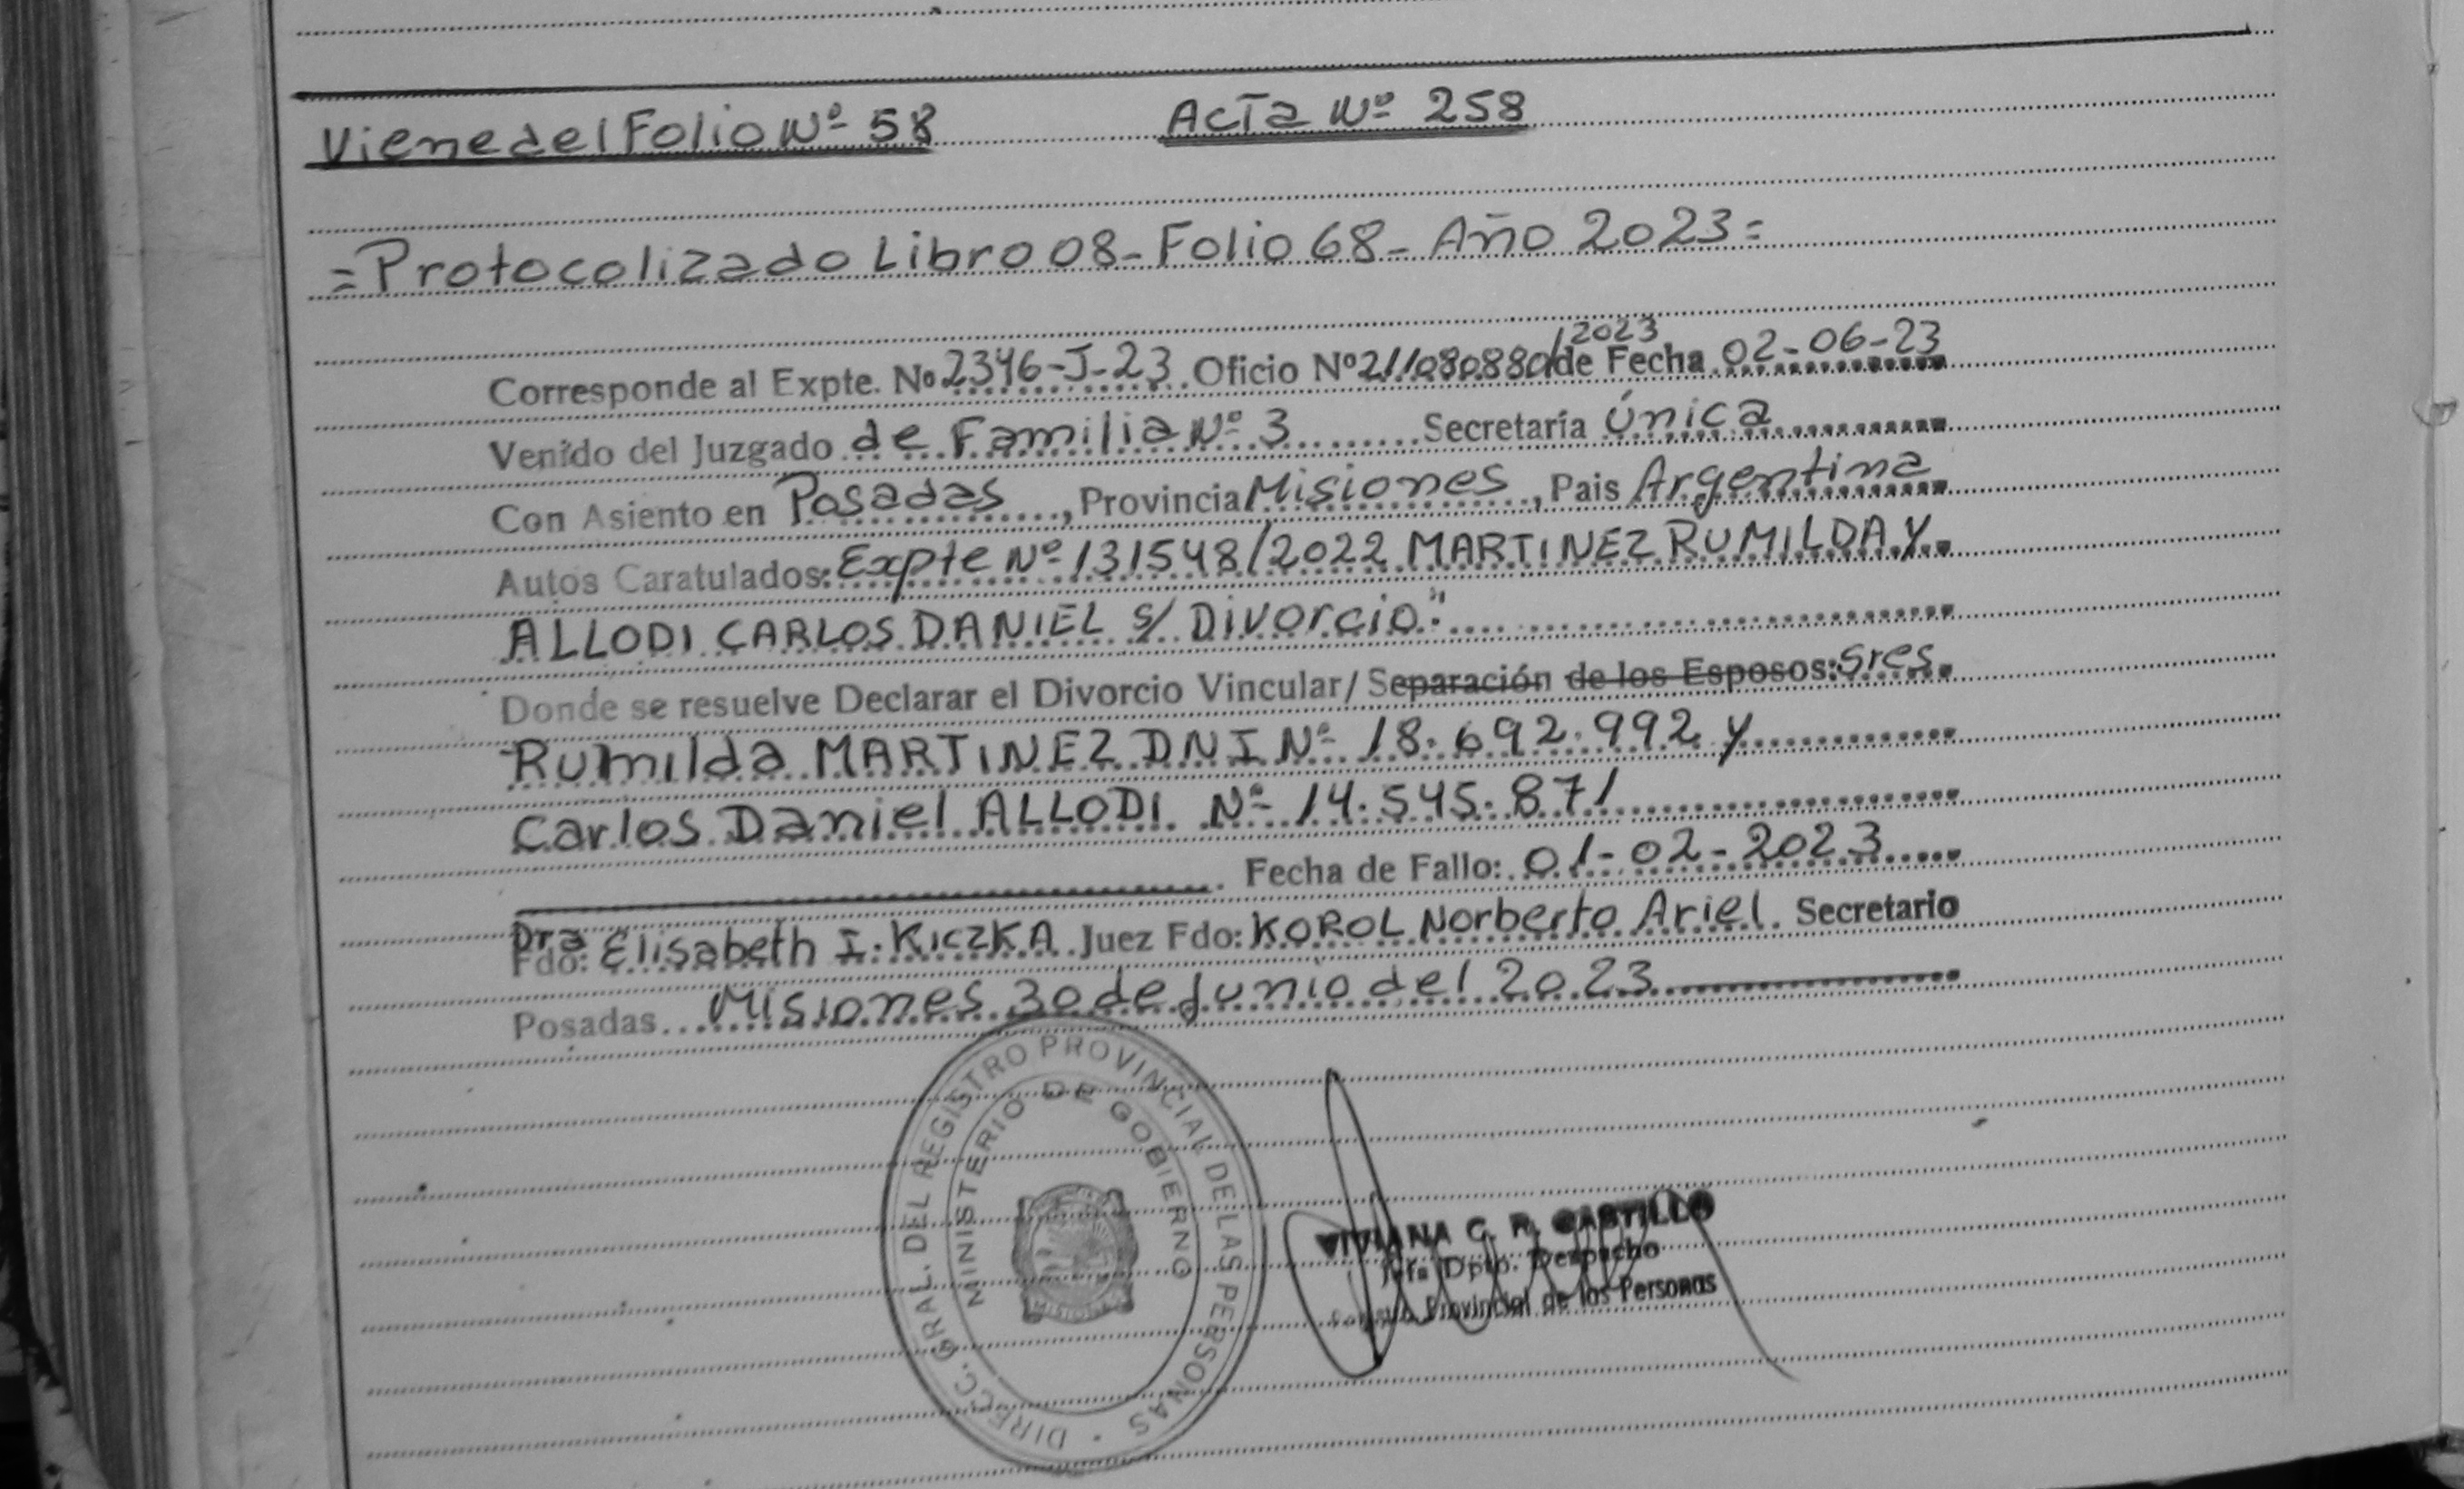 Viene del Folio Nº 58 Acta Nº 258
=Protocolizado Libro 08-Folio 68-Año 2023=
Corresponde al Expte. Nº 2346-J-23 Oficio Nº 211080880/2023 de Fecha 02-06-23
Venido del Juzgado de Familia Nº 3 Secretaría Única
Con Asiento en Posadas, Provincia Misiones, Pais Argentina
Autos Caratulados: Expte Nº 131548/2022 MARTINEZ RUMILDA Y
ALLODI CARLOS DANIEL s/ Divorcio"
Donde se resuelve Declarar el Divorcio Vincular/ Separación de los Esposos: Sres.
Rumilda MARTINEZ DNI Nº 18.692.992 y
Carlos Daniel ALLODI Nº 14.545.871
Fecha de Fallo: 01-02-2023
Dra
Fdo: Elisabeth I. KICZKA Juez Fdo: KOROL Norberto Ariel. Secretario
Posadas Misiones 30 de Junio del 2023
DIRECC. GRAL. DEL REGISTRO PROVINCIAL DE LAS PERSONAS
MINISTERIO DE GOBIERNO
MISIONES
VIVIANA C. R. CASTILLO
Jefa Dpto. Despacho
Provincial de las Personas